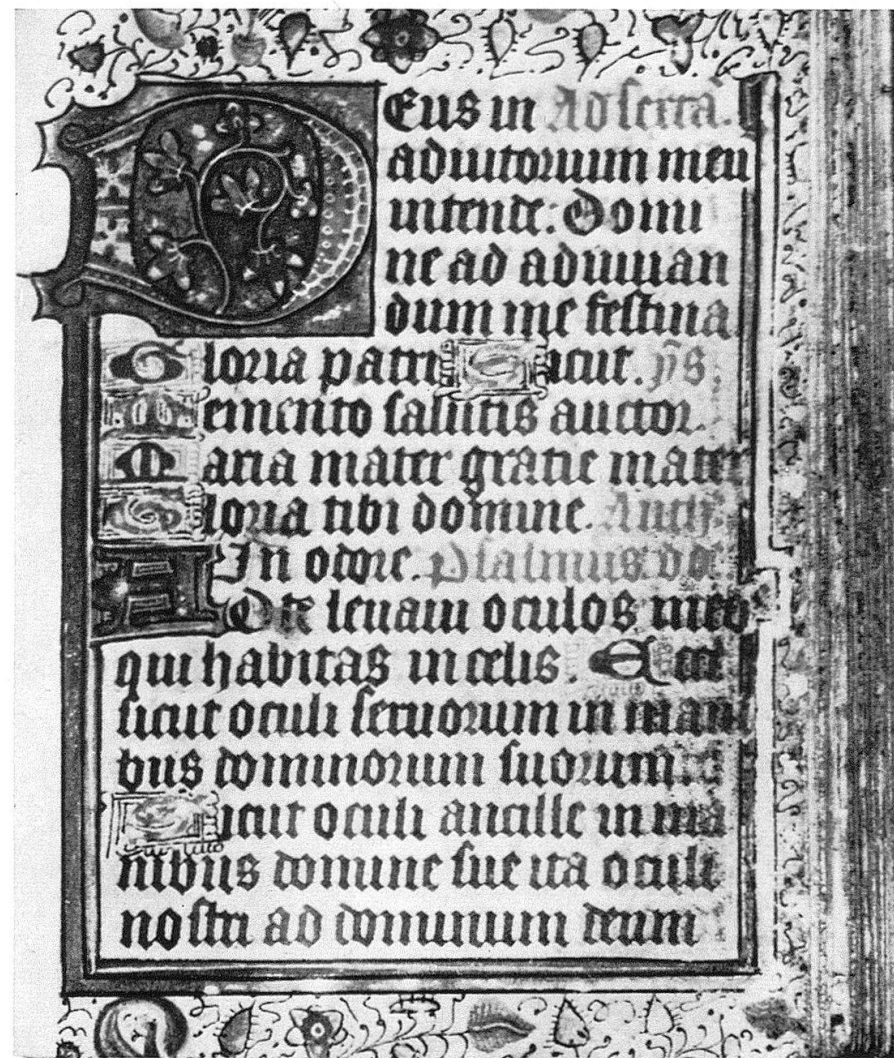 Deus in Ad sextā.
adiutorium meū
intende: Domi
ne ad adiuuan
dum me festina
Gloria patri Sicut. yͫs
Memento salutis auctor.
Maria mater gratie mater
Gloria tibi domine. Antiᵽ.
In odore. Psalmus dd
Ad te leuaui oculos meos
qui habitas in celis. Ecce
sicut oculi seruorum in man
bus dominorum suorum
Sicut oculi ancille in ma
nibus domine sue ita oculi
nostri ad dominum deum